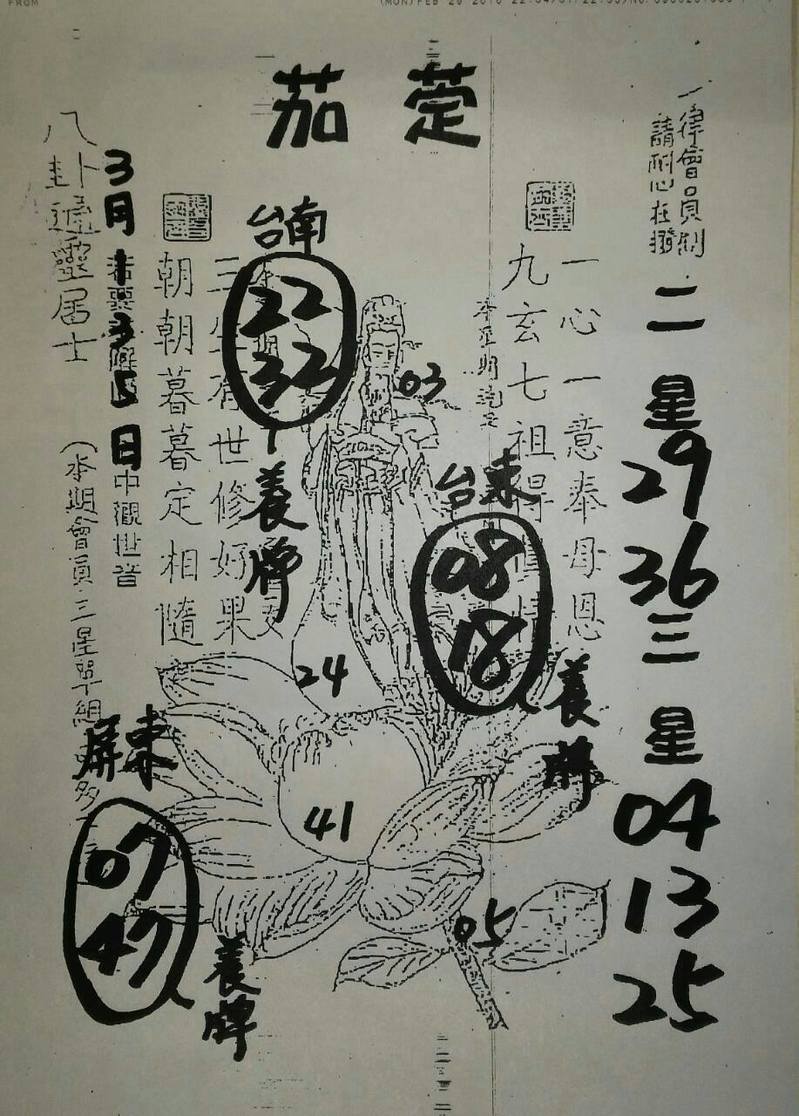 FROM
茄萣
一律會員制
請耐心在撥
二星
29
36
三星
04
13
25
一心一意奉母恩
九玄七祖得
台東
08
18
養牌
03
台南
22
32
養牌
世修好果
朝朝暮暮定相隨
24
41
05
八卦通靈居士
3月
5日
中觀世音
(本期會員三星單組
屏東
07
47
養牌